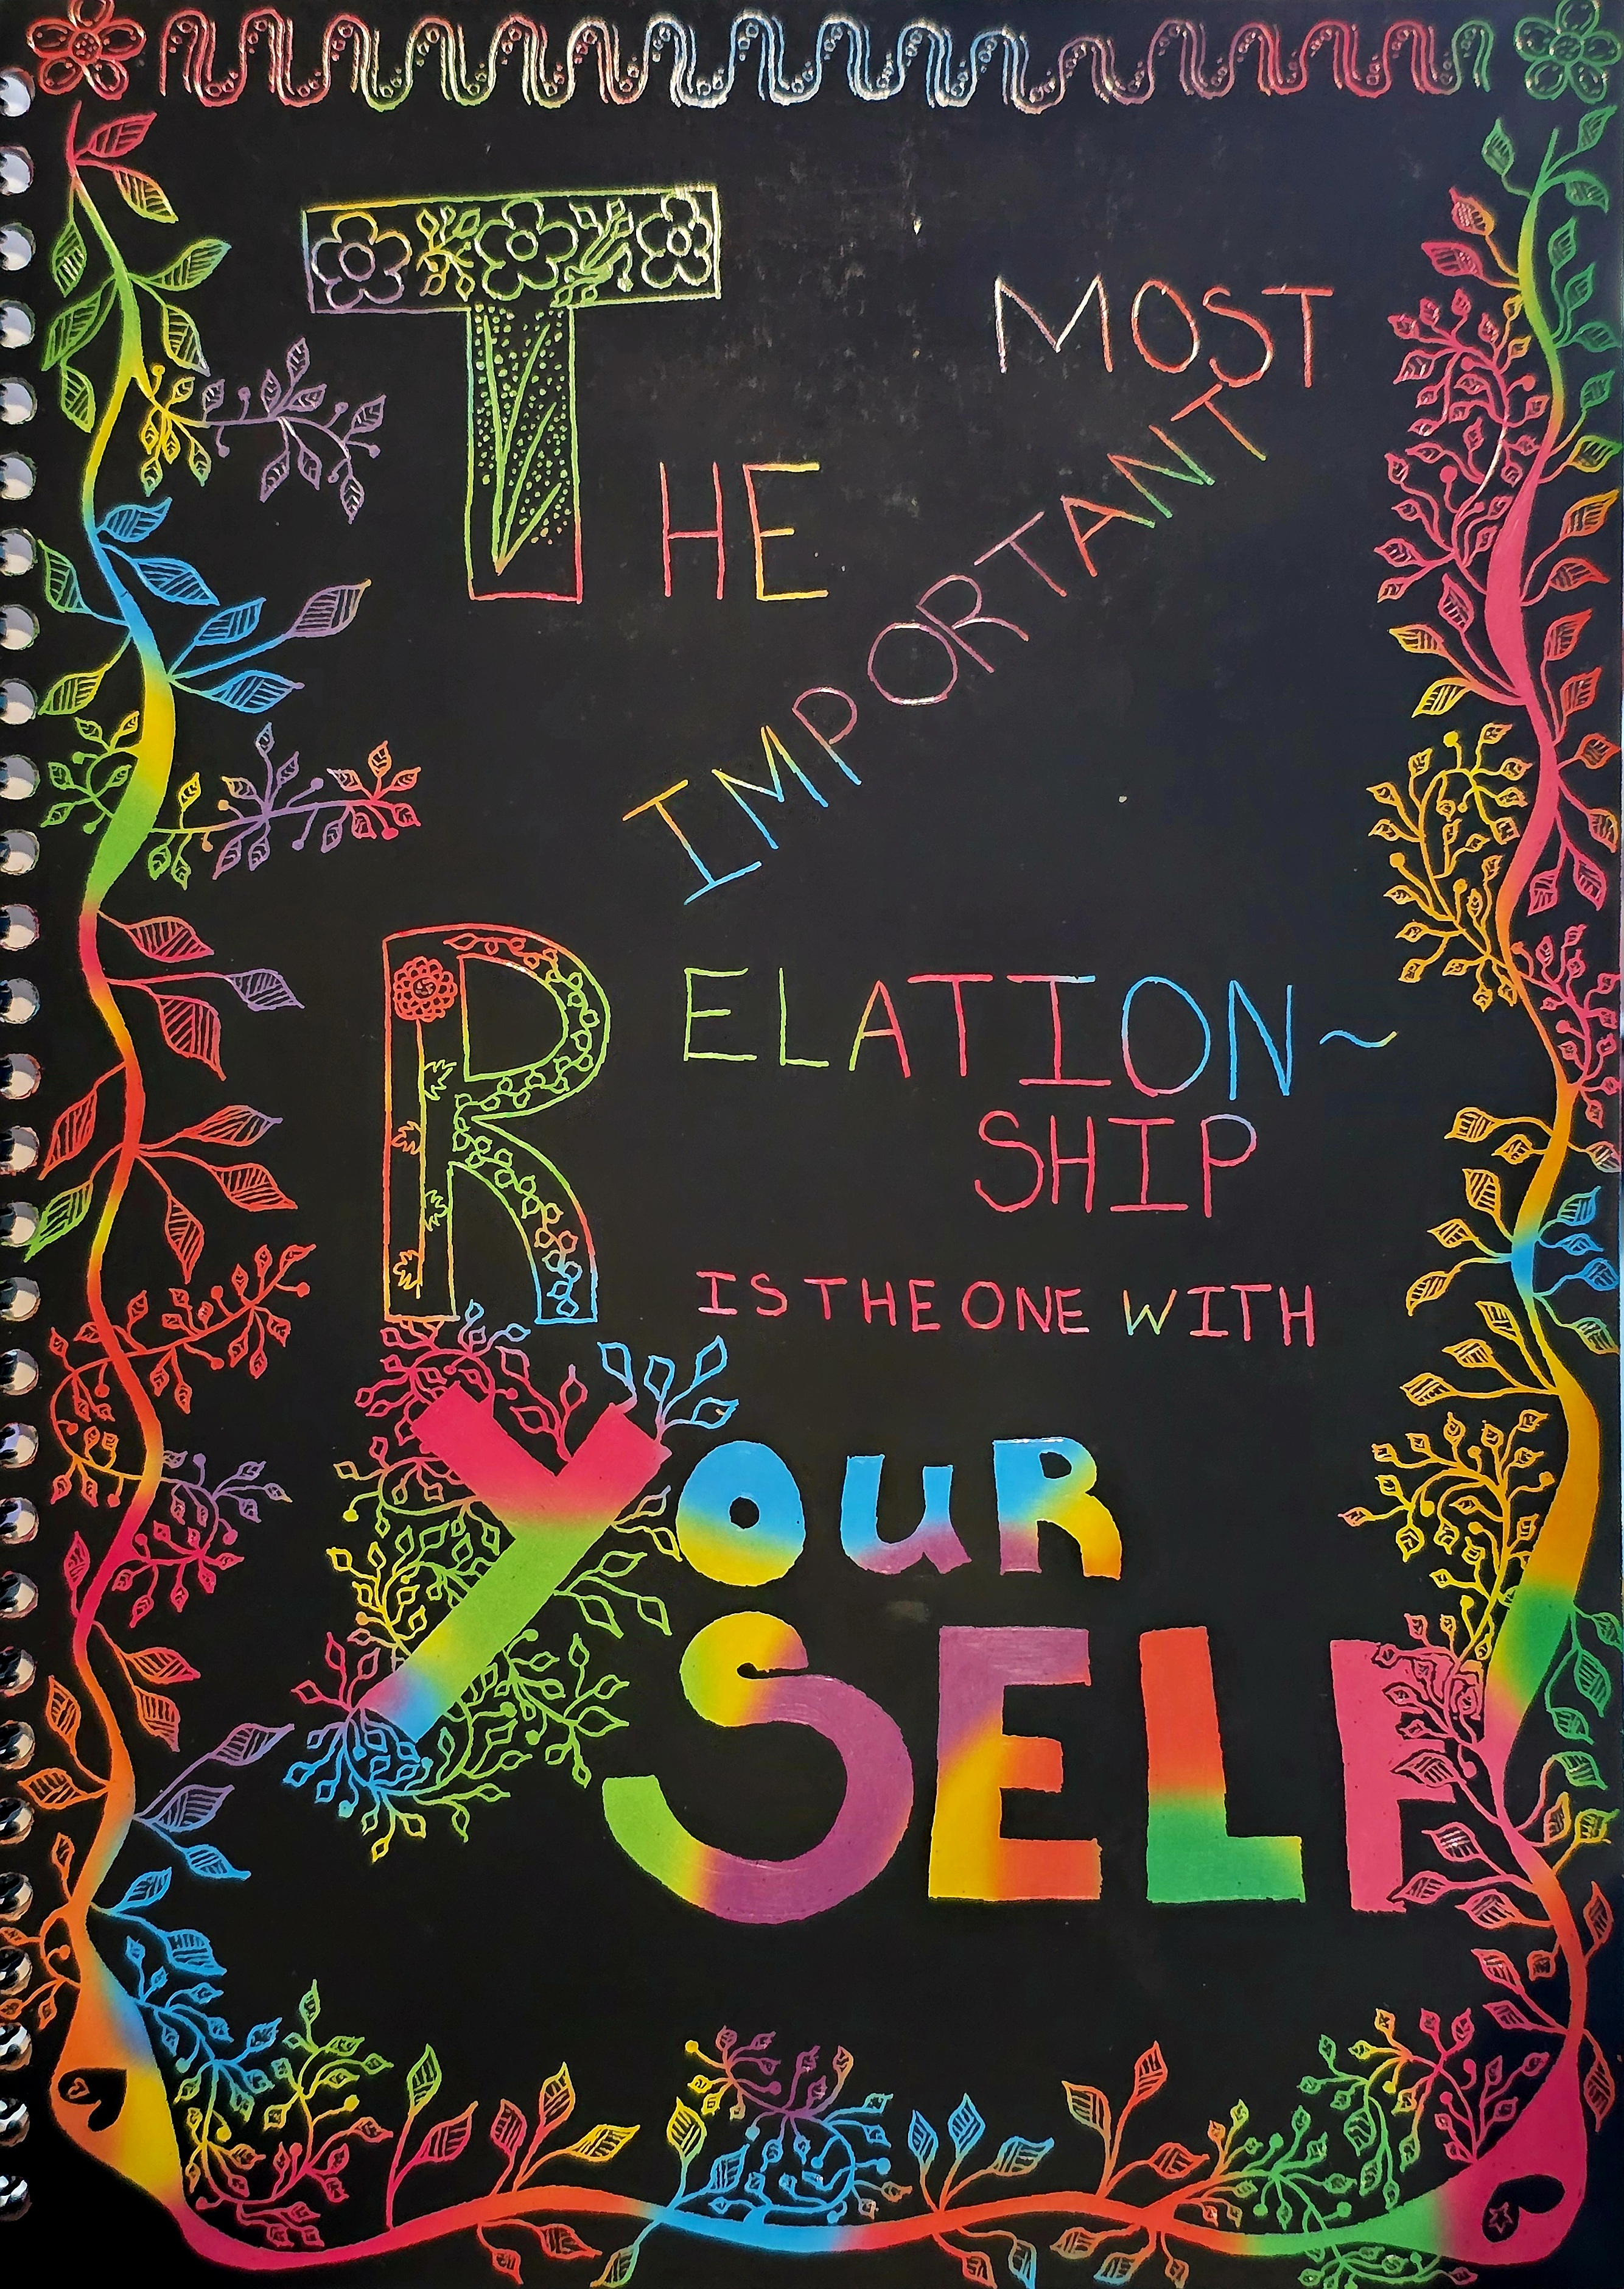 THE
MOST
IMPORTANT
RELATION~
SHIP
IS THE ONE WITH
YOUR
SELF